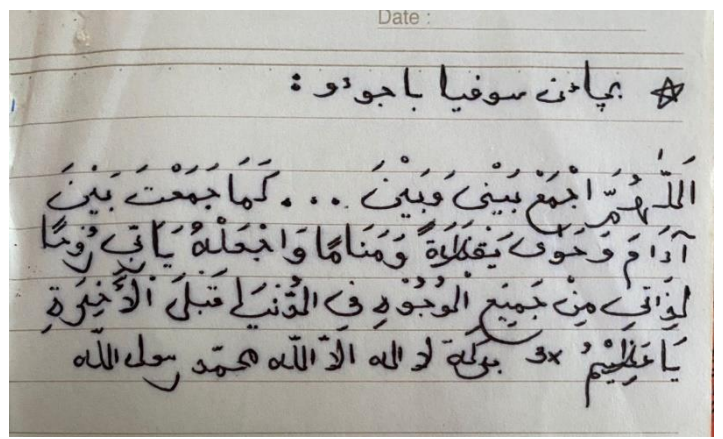 Date :
☆ بچاءن سوفيا باجوءو :
اَللّٰهُمَّ اجْمَعْ بَيْنِيْ وَبَيْنَ ... كَمَا جَمَعْتَ بَيْنَ
آدَامَ وَحَوٰى يَقَظَةً وَمَنَامًا وَاجْعَلْهُ يَأتِي رُوحًا
لِذَاتِى مِنْ جَمِيْعِ الْوُجُوْهِ فِى الدُّنْيَا قَبْلَ الْأَخِرَةِ
يَا عَظِيْمُ 3x بركة لا اله الاّ اللّه محمّد رسول اللّه